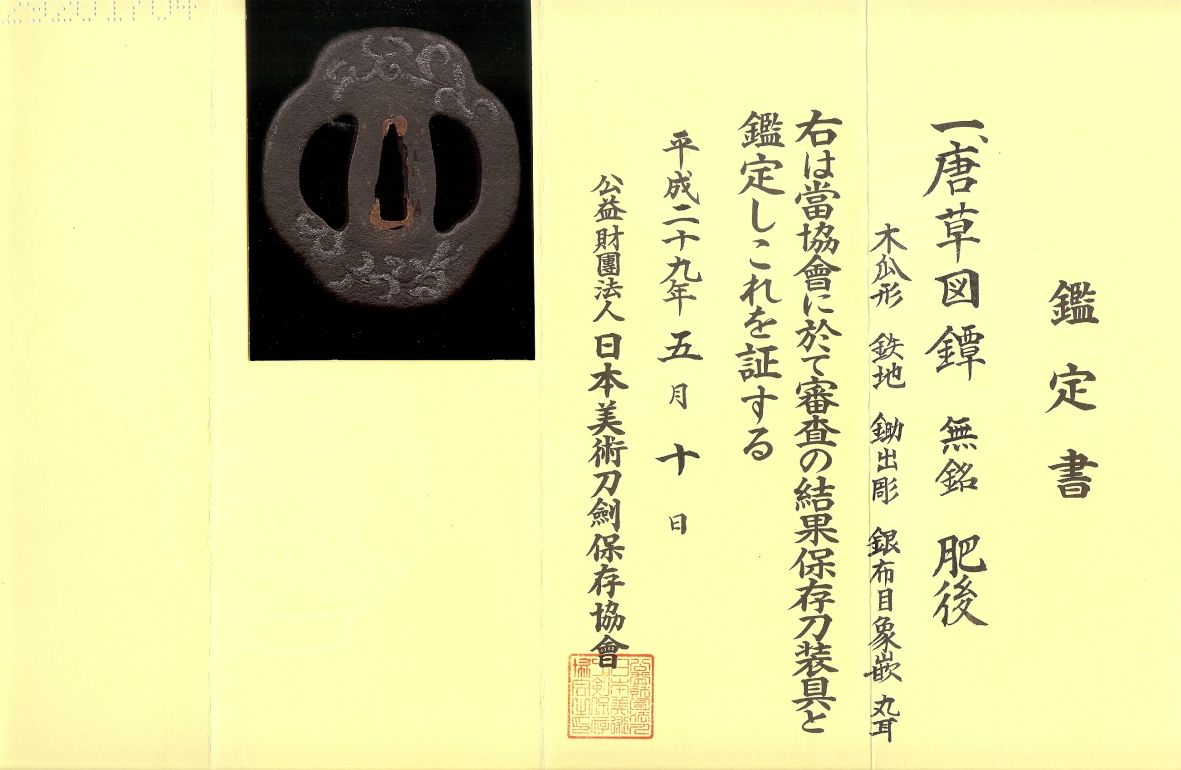 鑑定書
一、唐草図鐔 無銘 肥後
木瓜形 鉄地 鋤出彫 銀布目象嵌 丸耳
右は當協會に於て審査の結果保存刀装具と
鑑定しこれを証する
平成二十九年五月十日
公益財團法人日本美術刀劍保存協會